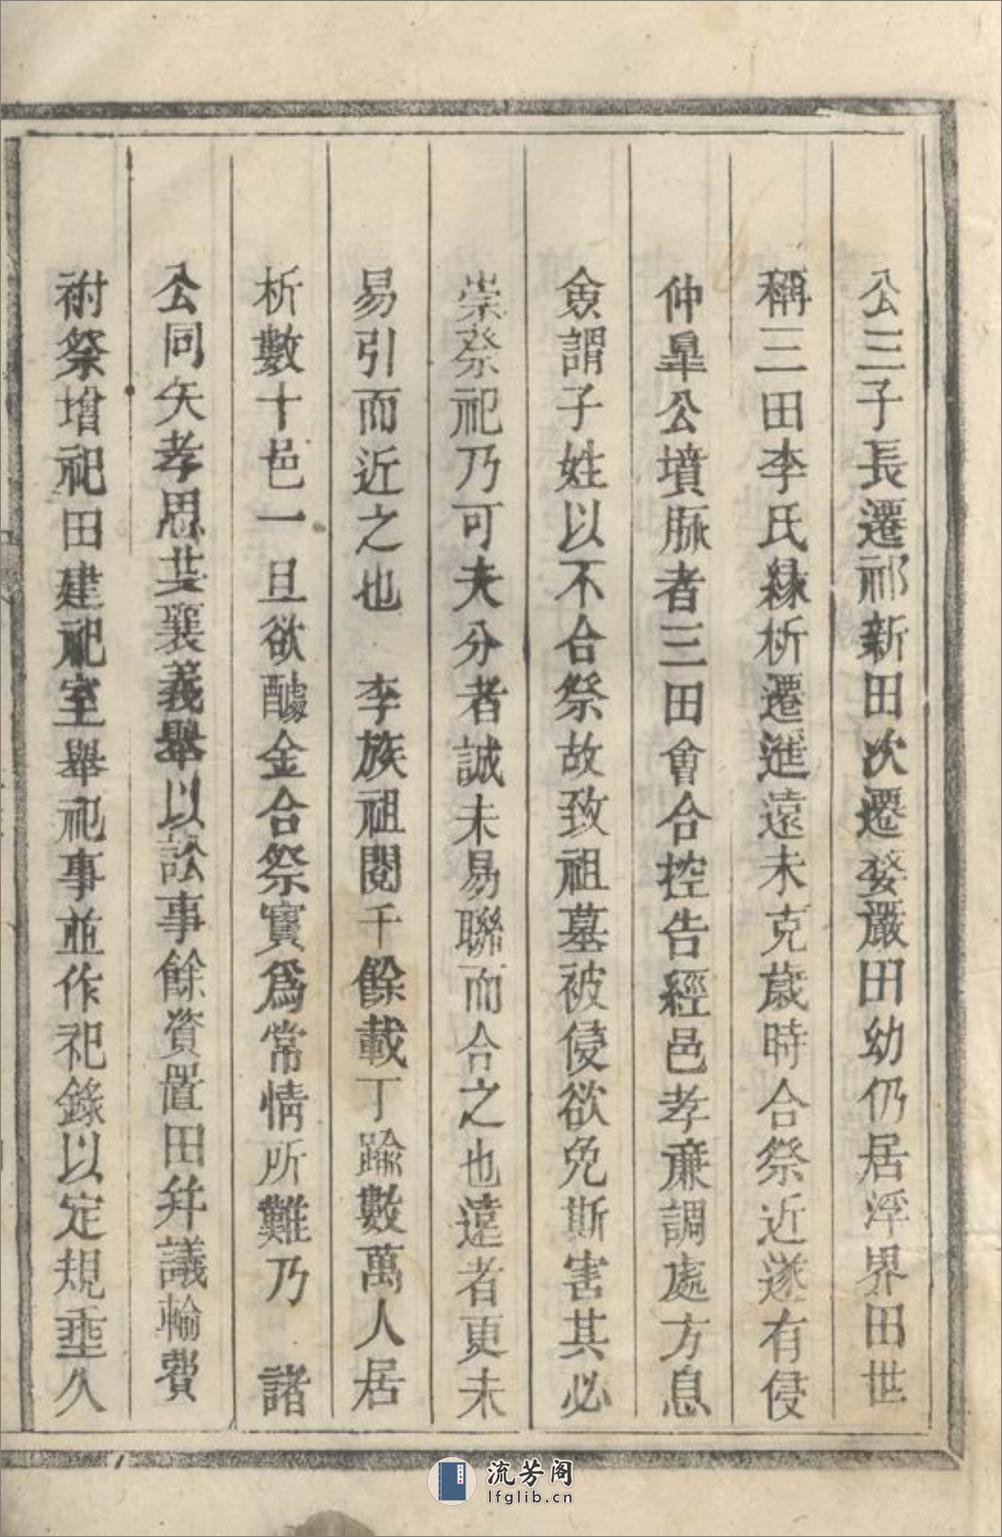 公三子長遷祁新田次遷婺嚴田幼仍居浮界田世
稱三田李氏緣析遷遥遠未克歲時合祭近遂有侵
仲臯公墳脈者三田會合控告經邑孝亷調處方息
僉謂子姓以不合祭故致祖墓被侵欲免斯害其必
崇祭祀乃可夫分者誠未易聯而合之也遠者更未
易引而近之也 李族祖閱千餘載丁踰數萬人居
析數十邑一旦欲醵金合祭實爲常情所難乃 諸
公同矢孝思共襄義舉以訟事餘資置田并議輸費
祔祭增祀田建祀室舉祀事並作祀錄以定規垂久
流芳阁
lfglib.cn